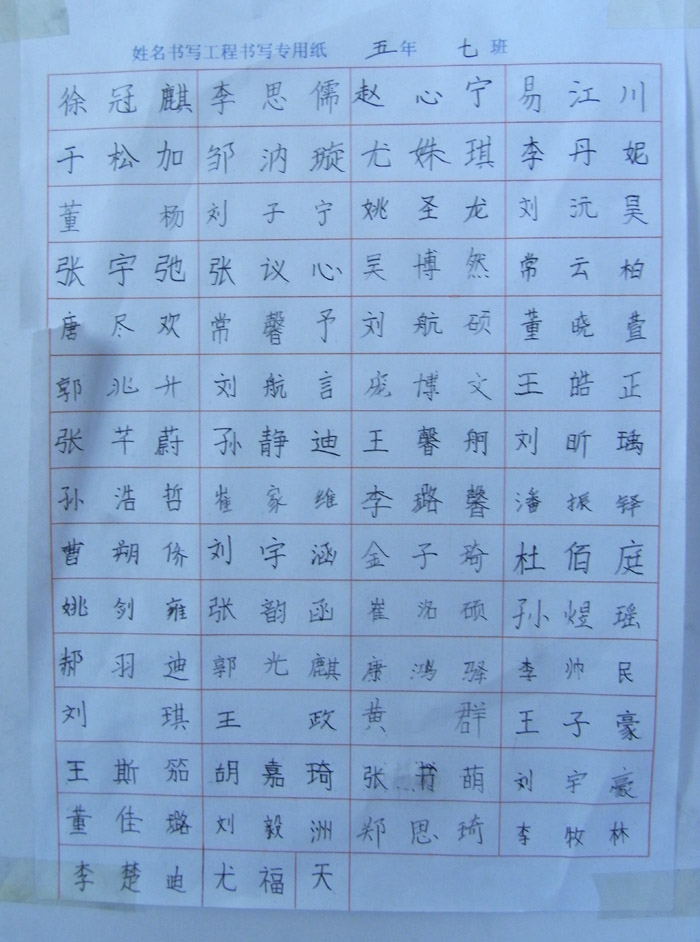 姓名书写工程书写专用纸 五年 七班
徐冠麒 李思儒 赵心宁 易江川
于松加 邹汭璇 尤姝琪 李丹妮
董杨 刘子宁 姚圣龙 刘沅昊
张宇弛 张议心 吴博然 常云柏
唐尽欢 常馨予 刘航硕 董晓萱
郭兆升 刘航言 庞博文 王皓正
张芊蔚 孙静迪 王馨舸 刘昕瑀
孙浩哲 崔家维 李璐馨 潘振铎
曹朔侨 刘宇涵 金子琦 杜佰庭
姚剑雍 张韵函 崔洺硕 孙煜瑶
郝羽迪 郭光麒 康鸿驿 李帅民
刘琪 王政 黄群 王子豪
王斯笳 胡嘉琦 张书萌 刘宇豪
董佳璐 刘毅洲 郑思琦 李牧林
李楚迪 尤福天